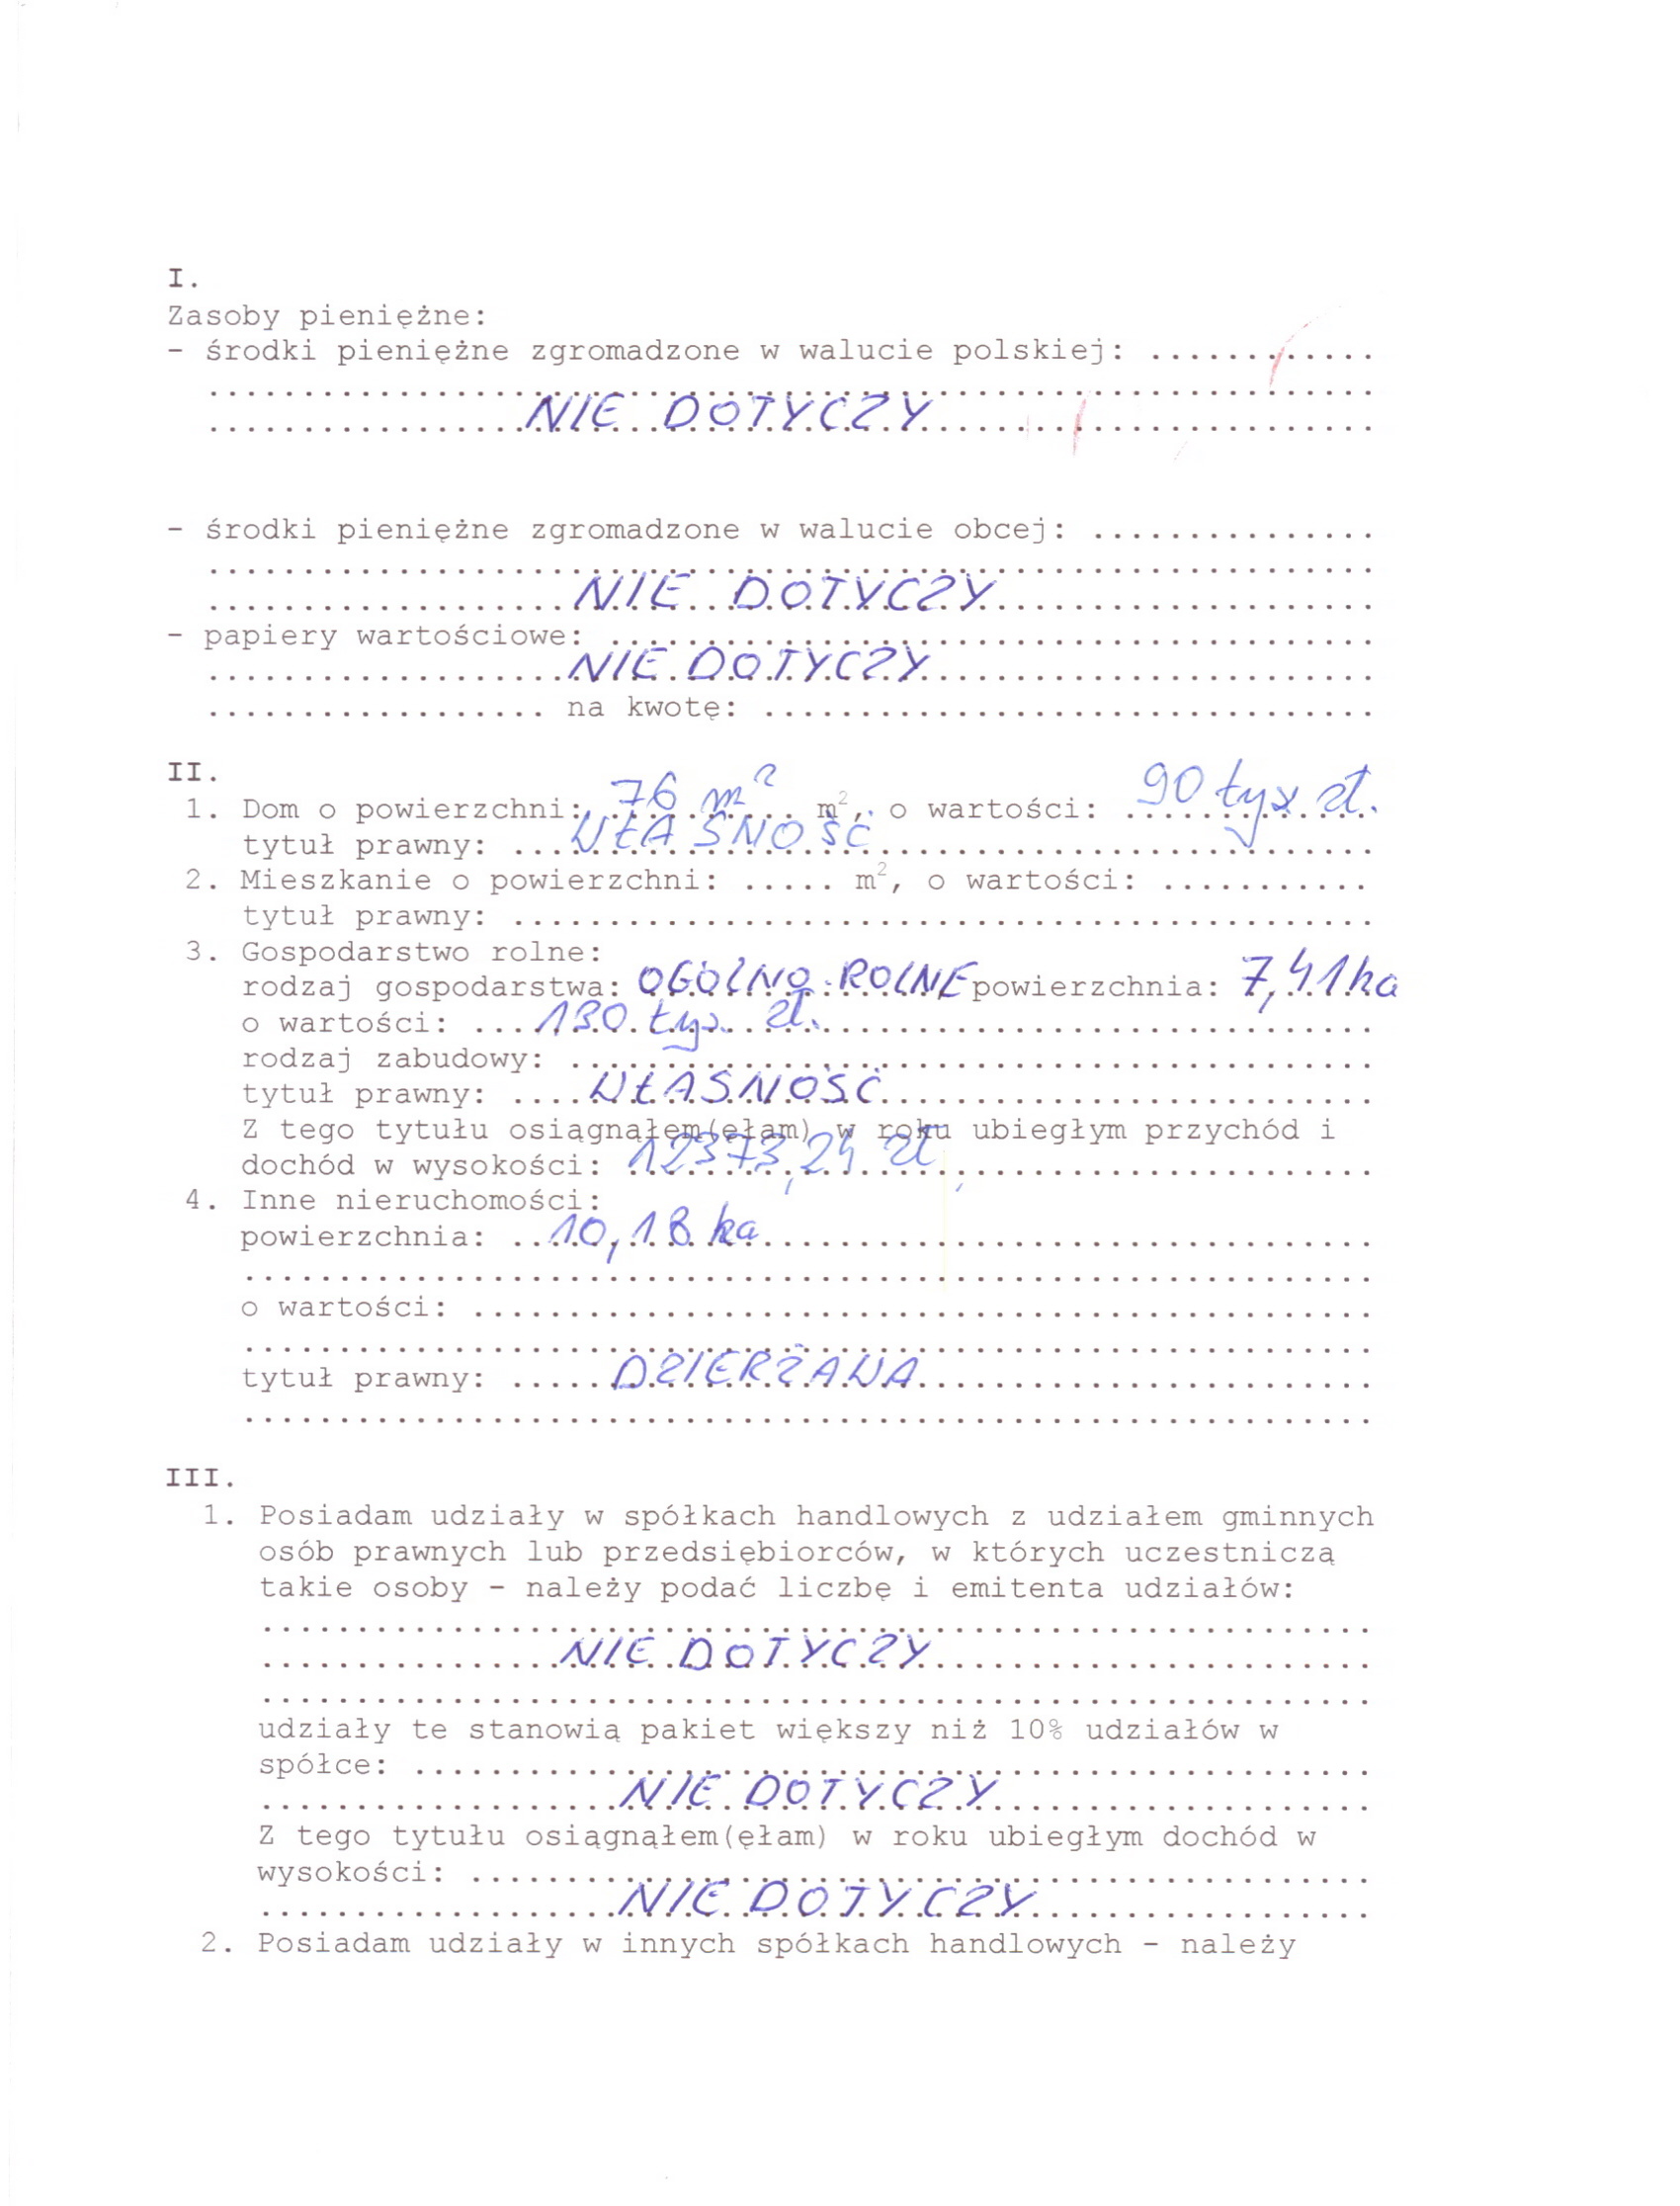 I.
Zasoby pieniężne:
- środki pieniężne zgromadzone w walucie polskiej: ............
NIE DOTYCZY
- środki pieniężne zgromadzone w walucie obcej: ...............
NIE DOTYCZY
- papiery wartościowe: ........................................
NIE DOTYCZY
.................. na kwotę: ................................
II.
1. Dom o powierzchni: 76 m² m², o wartości: 90 tys zł.
tytuł prawny: WŁASNOŚĆ
2. Mieszkanie o powierzchni: ..... m², o wartości: ...........
tytuł prawny: .............................................
3. Gospodarstwo rolne:
rodzaj gospodarstwa: OGÓLNO-ROLNE powierzchnia: 7,41 ha
o wartości: 130 tys. zł.
rodzaj zabudowy: ..........................................
tytuł prawny: WŁASNOŚĆ
Z tego tytułu osiągnąłem(ęłam) w roku ubiegłym przychód i
dochód w wysokości: 12373,24 zł
4. Inne nieruchomości:
powierzchnia: 10,18 ha
o wartości: ...............................................
tytuł prawny: DZIERŻAWA
III.
1. Posiadam udziały w spółkach handlowych z udziałem gminnych
osób prawnych lub przedsiębiorców, w których uczestniczą
takie osoby - należy podać liczbę i emitenta udziałów:
NIE DOTYCZY
udziały te stanowią pakiet większy niż 10% udziałów w
spółce: ...................................................
NIE DOTYCZY
Z tego tytułu osiągnąłem(ęłam) w roku ubiegłym dochód w
wysokości: ................................................
NIE DOTYCZY
2. Posiadam udziały w innych spółkach handlowych - należy